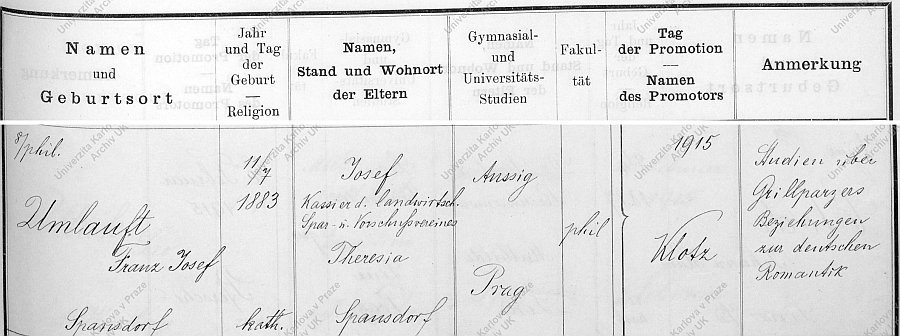 Namen
und
Geburtsort
Jahr
und Tag
der
Geburt
Religion
Namen,
Stand und Wohnort
der Eltern
Gymnasial-
und
Universitäts-
Studien
Fakul-
tät
Tag
der Promotion
Namen
des Promotors
Anmerkung
8/phil.
Umlauft
Franz Josef
Spansdorf
11/7
1883
kath.
Josef
Kassier d. landwirtsch.
Spar- u. Vorschußvereines
Theresia
Spansdorf
Aussig
Prag
phil
1915
Klotz
Studien über
Grillparzers
Beziehungen
zur deutschen
Romantik
Univerzita Karlova v Praze
Archiv UK